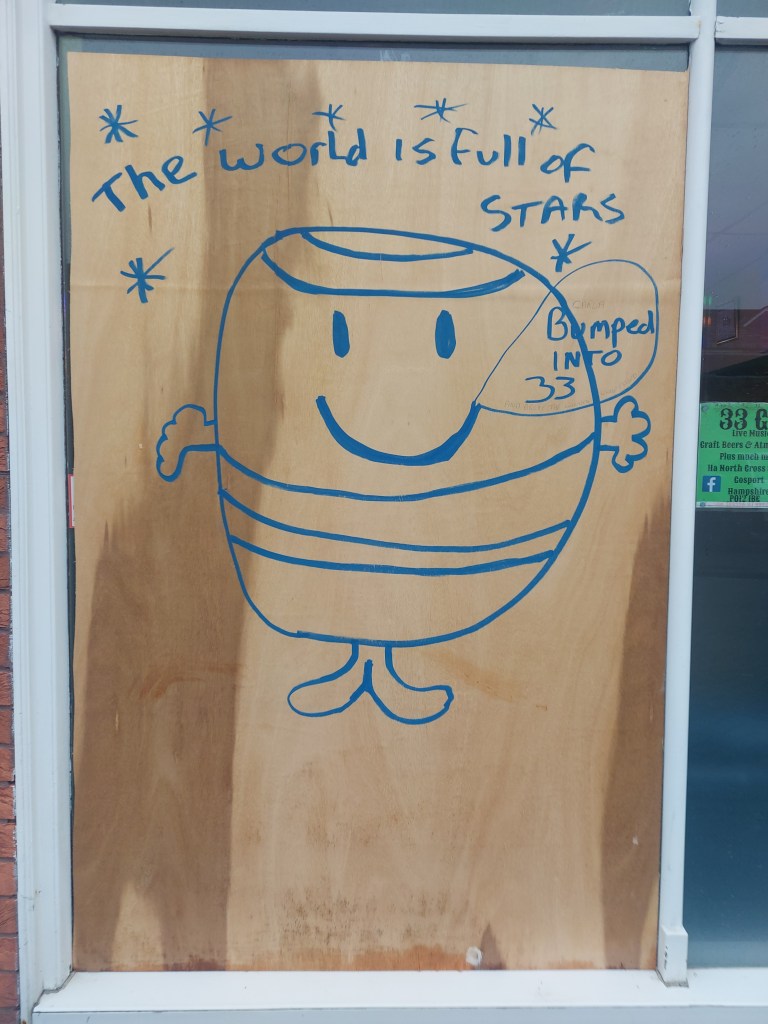 The world is Full of
STARS
Bumped
INTO
33
33 G
Live Music
Craft Beers &
Plus much
11a North Cross
Gosport
Hampshire
PO12 1BE